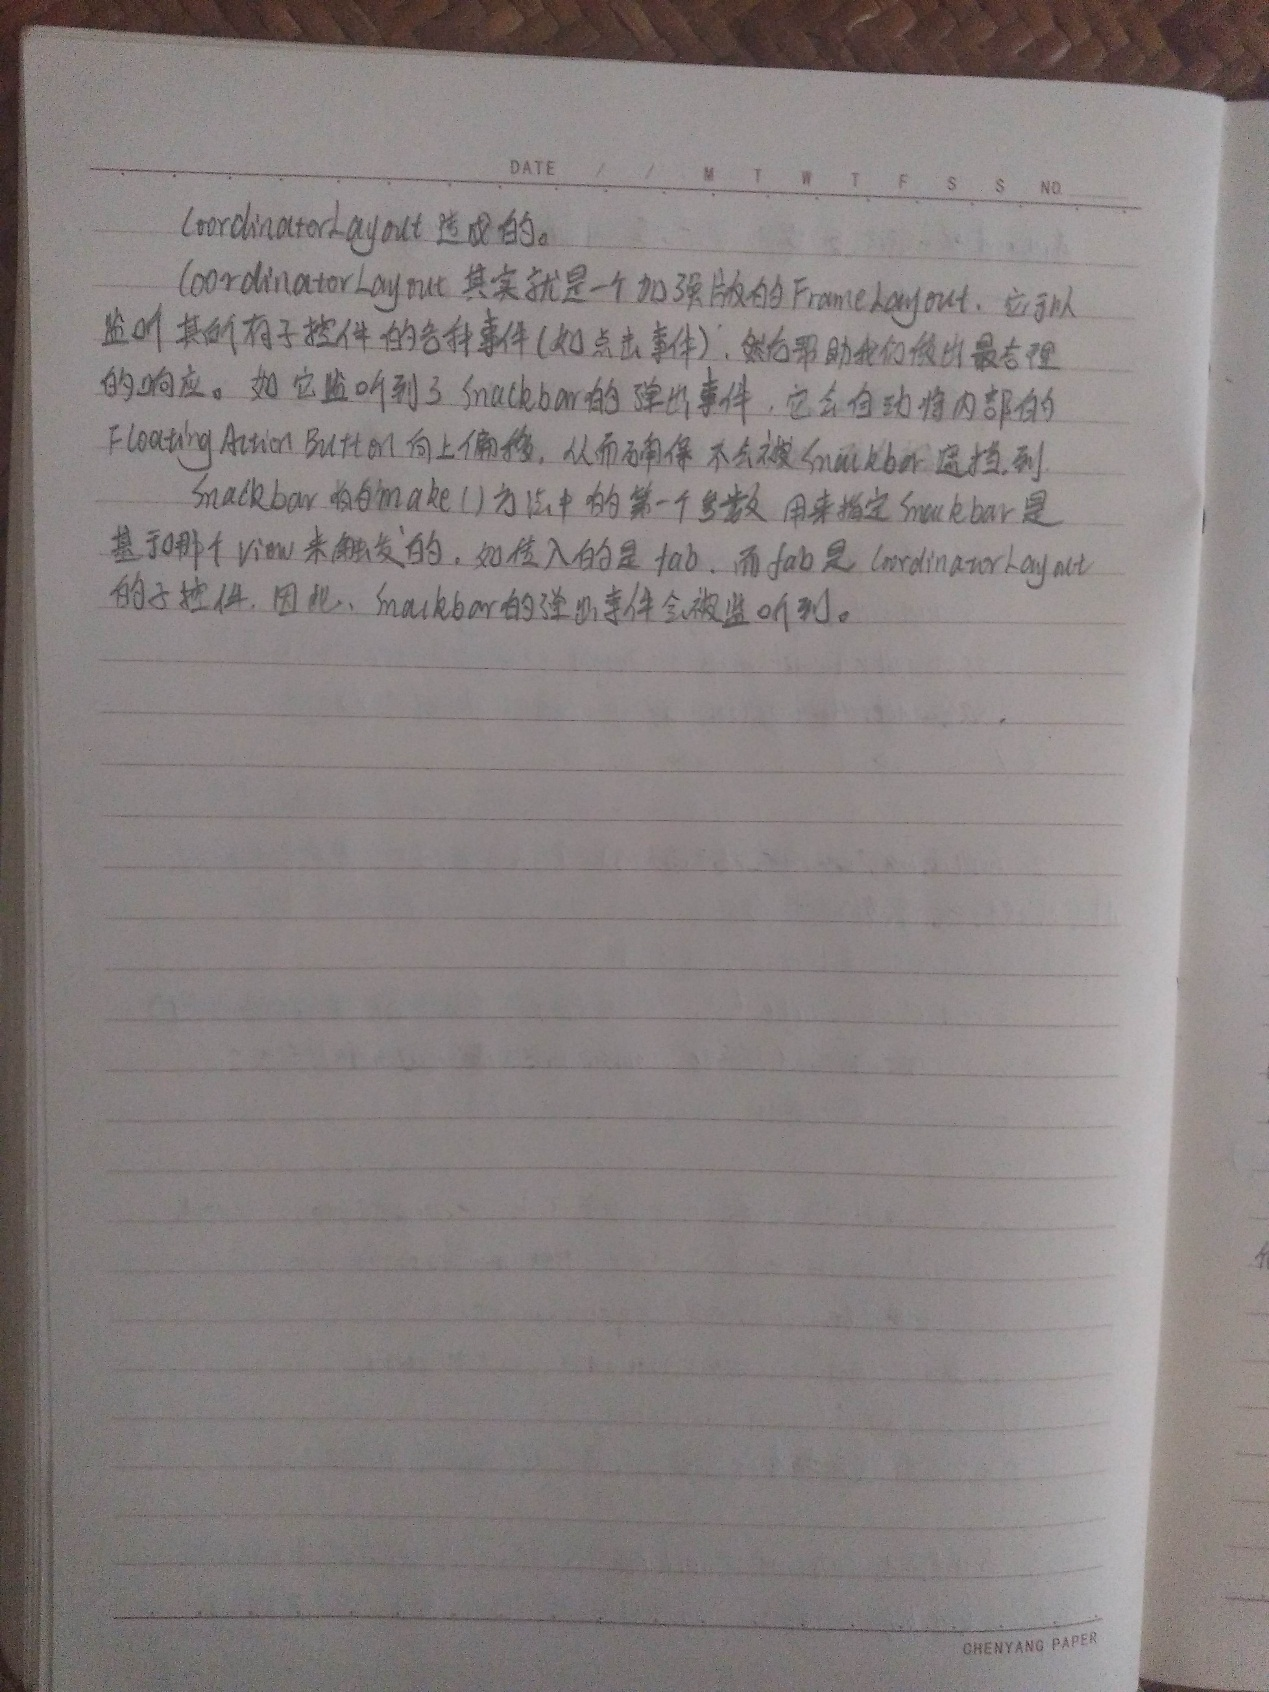 DATE / / M T W T F S S NO.
CoordinatorLayout 造成的。
CoordinatorLayout 其实就是一个加强版的FrameLayout，它可以
监听其所有子控件的各种事件(如点击事件)，然后帮助我们做出最合理
的响应。如它监听到了Snackbar的弹出事件，它会自动将内部的
FloatingActionButton向上偏移，从而确保不会被Snackbar遮挡到.
Snackbar 的make()方法中的第一个参数 用来指定Snackbar是
基于哪个View来触发的，如传入的是fab，而fab是CoordinatorLayout
的子控件，因此，Snackbar的弹出事件会被监听到。
CHENYANG PAPER